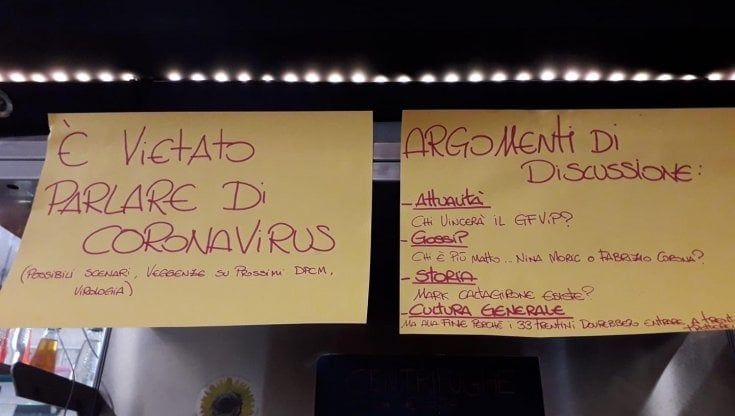 È VIETATO
PARLARE DI
CORONAVIRUS
(POSSIBILI SCENARI, VEGGENZE SU PROSSIMI DPCM,
VIROLOGIA)
ARGOMENTI DI
DISCUSSIONE:
- ATTUALITÀ
CHI VINCERÀ IL GFVIP?
- GOSSIP
CHI È PIÙ MATTO... NINA MORIC O FABRIZIO CORONA?
- STORIA
MARK CALTAGIRONE ESISTE?
- CULTURA GENERALE
MA ALLA FINE PERCHÉ I 33 TRENTINI DOVREBBERO ENTRARE A TRENTO
CENTRIFUGHE